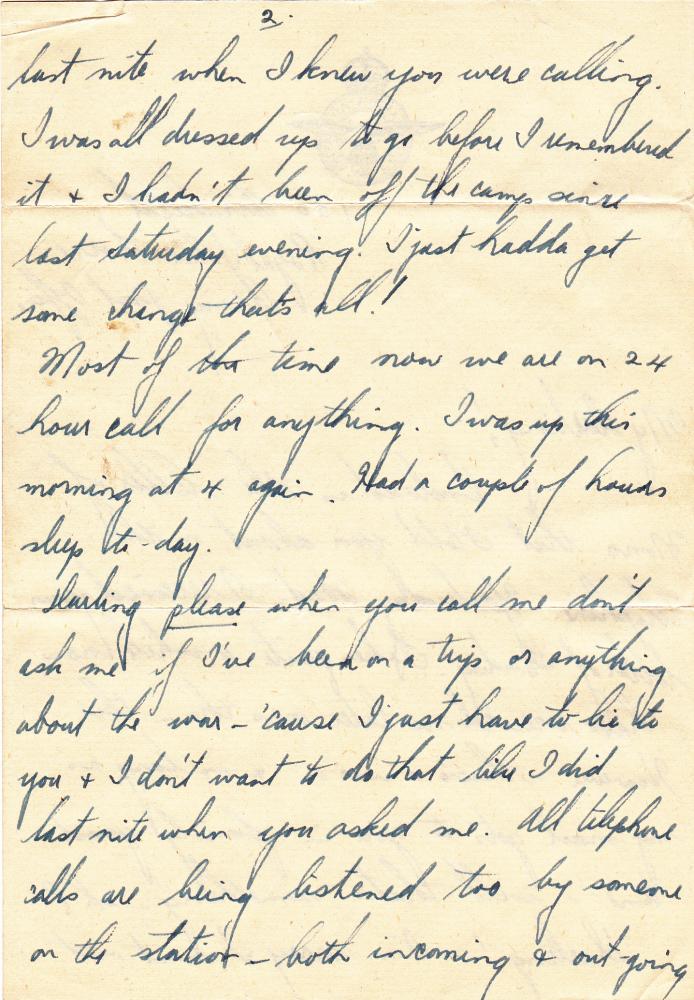 2.
last nite when I knew you were calling.
I was all dressed up to go before I remembered
it + I hadn't been off the camp since
last Saturday evening. I just hadda get
some change that's all!
Most of the time now we are on 24
hour call for anything. I was up this
morning at 4 again. Had a couple of hours
sleep to-day.
Darling please when you call me don't
ask me if I've been on a trip or anything
about the war - 'cause I just have to lie to
you + I don't want to do that like I did
last nite when you asked me. All telephone
calls are being listened too by someone
on the station - both incoming & out-going